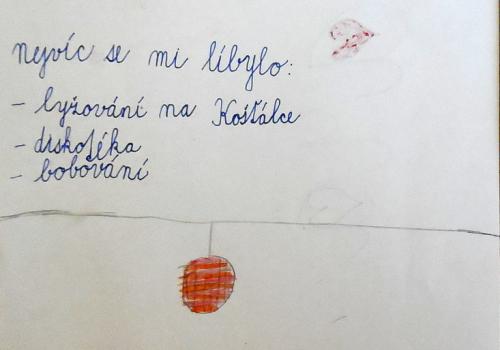 nejvíc se mi líbylo:
- lyžování na Košťálce
- diskotéka
- bobování